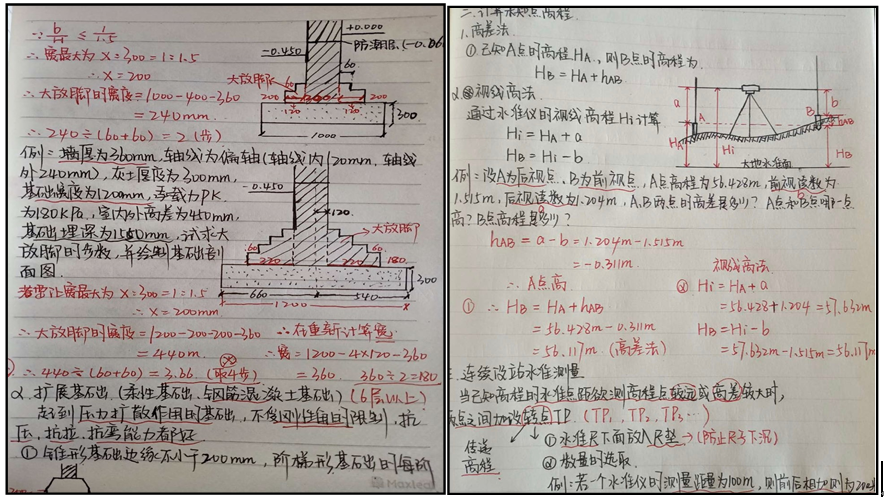 ∵ b/H ≤ 1/1.5
∴ 宽最大为 X:300=1:1.5
∴ X=200
∴ 大放脚的宽度=1000-400-360
=240mm
∴ 240÷(60+60)=2(步)
±0.000
防潮层(-0.06
-0.450
60
大放脚
60
200
200
120
120
300
1000
例:墙厚为360mm,轴线为偏轴(轴线内120mm,轴线
外240mm),灰土厚度为300mm,
基础宽度为1200mm,承载力PK
为180KPa,室内外高差为450mm,
基础埋深为1500mm,试求大
放脚的步数,并绘制基础剖
面图.
-0.450
120
大放脚
60
60
220
220
180
300
660
540
1200
若要让宽最大为 X:300=1:1.5
∴ X=200mm
∴ 大放脚的宽度=1200-200-200-360
=440m
∴ 440÷(60+60)=3.66 (取4步)
∴在重新计算宽:
∴宽=1200-4×120-360
=360 360÷2=180
2.扩展基础(柔性基础、钢筋混凝土基础)(6层以上)
起到压力扩散作用的基础,不受刚性角的限制,抗
压、抗拉、抗弯能力都好
①锥形基础边缘不小于200mm,阶梯形基础的每阶
200
二.计算未知点高程.
1.高差法.
①已知A点的高程HA,则B点的高程为
HB=HA+hAB
2.视线高法
通过水准仪的视线高程Hi计算
Hi=HA+a
HB=Hi-b
a
A
HA
Hi
b
B
hAB
HB
大地水准面
例:设A为后视点,B为前视点,A点高程为56.428m,前视读数为
1.515m,后视读数为1.204m,A、B两点的高差是多少?A点和B点哪一点
高?B点高程是多少?
hAB=a-b=1.204m-1.515m
=-0.311m.
∴A点高
① ∴HB=HA+hAB
=56.428m-0.311m
=56.117m (高差法)
视线高法
② Hi=HA+a
=56.428+1.204=57.632m
HB=Hi-b
=57.632m-1.515m=56.117m
三.连续设站水准测量
当已知高程的水准点距欲测高程点较远或高差较大时,
两点之间加设转点TP.(TP1、TP2、TP3…)
传递
高程
①水准尺下面放入尺垫→(防止尺子下沉)
②数量的选取.
例:若一个水准仪的测量距量为100m,则前后相加则为200m